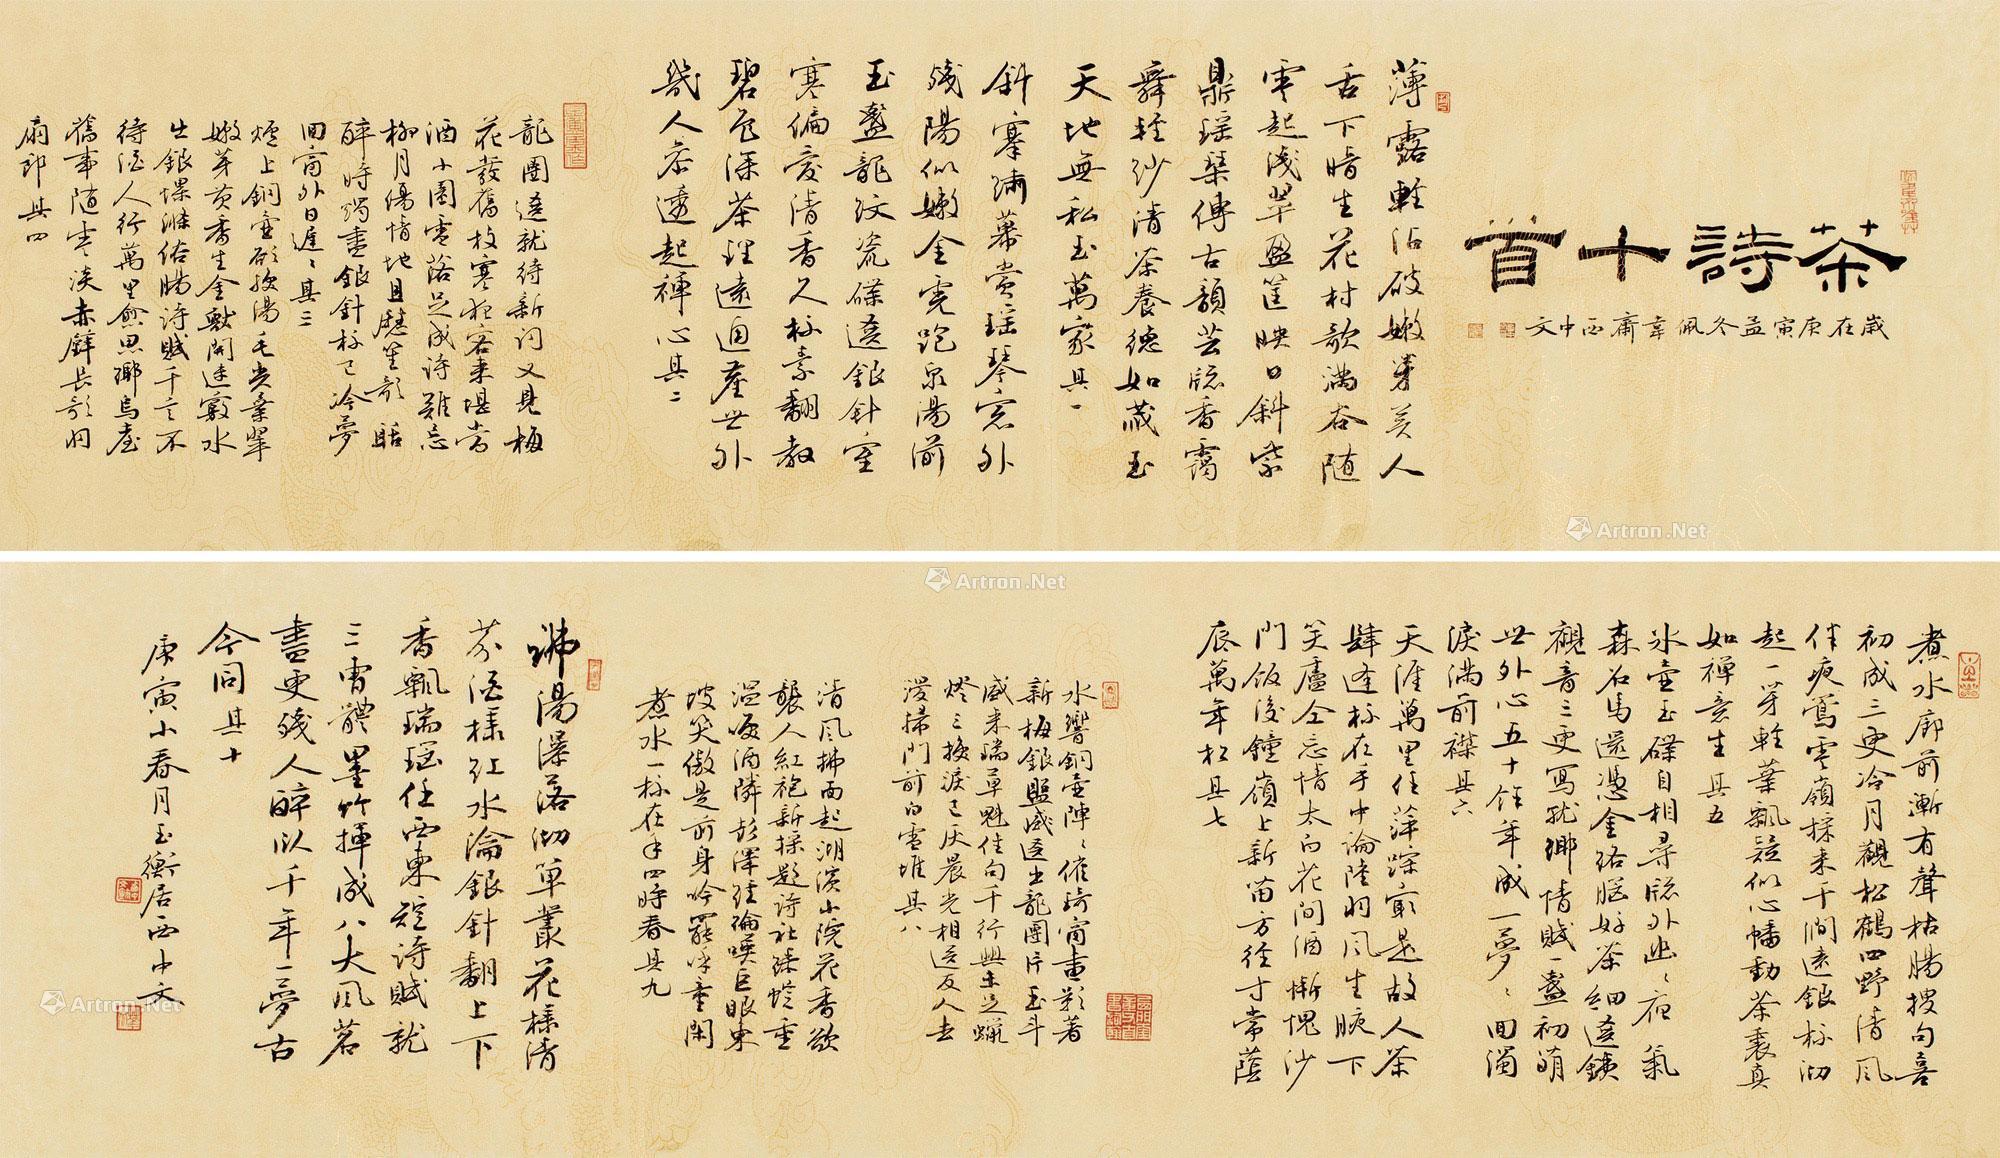 茶詩十首
歲在庚寅孟冬佩韋齋西中文
薄露輕沾破嫩芽美人
舌下暗生花村歌滿谷随
雲起淺翠盈筐映日斜紫
鼎瑶琴傳古韻芸窓香靄
舞輕紗清茶養德如藏玉
天地無私玉萬家其一
斜搴繡幕賞瑶琴窓外
殘陽似嫩金霓跑泉湯前
玉盞龍紋瓷碟遠銀針室
寒偏愛清香久杯素翻教
碧色深茶理遠迴塵世外
幾人参透起禪心其二
龍團遠就待新詞又見梅
花發舊枝寒夜客来堪当
酒小園雪落足成詩難忘
柳月傷情地且聽笙歌酤
醉時燭盡銀針杯已冷夢
回窗外日遲遲其三
爐上銅壺欲沸湯毛尖葉翠
嫩芽黄香生金獸開迷竅水
出銀瓅滌俗腸詩賦千言不
待酒人行萬里愈思鄉烏臺
舊事随雲淡赤壁長歌羽
扇郎其四
煮水廊前漸有聲枯腸搜句喜
初成三更冷月觀松鶴四野清風
伴夜鶯雲嶺採来千澗遠銀杯沏
起一芽輕葉飄疑似心幡動茶裏真
如禪意生其五
冰壺玉碟自相尋窓外幽幽夜氣
森名馬還憑金絡腦好茶細選鉄
觀音三更寫就鄉情賦一盞初萌
世外心五十年成一夢夢回濁
淚滿前襟其六
天涯萬里任萍蹤窮是故人茶
肆逢杯在手中論陸羽風生腋下
笑盧仝忘情太白花間酒慚愧沙
門飯後鐘嶺上新苗方徑寸常蔭
辰萬年松其七
水響銅壺陣陣催琦窗畫影著
新梅銀盤盛遠出龍團片玉斗
盛来瑞草魁佳句千行興未足蠟
燈三換淚已灰晨光相送友人去
漫掃門前白雪堆其八
清風拂面起湖濱小院花香欲
襲人紅袍新採題詩社珠蛻重
温啜酒隣彭澤經綸喚巨眼東
坡笑傲是前身吟罷浮童閑
煮水一杯在手四時春其九
沸湯瀑落沏單叢花樣清
芬酒樣红水淪銀針翻上下
香飄瑞瑶任西東短詩賦就
三雷體墨竹揮成八大風茗
盡更殘人醉似千年一夢古
今同其十
庚寅小春月玉衡居西中文
Artron.Net
Artron.Net
Artron.Net